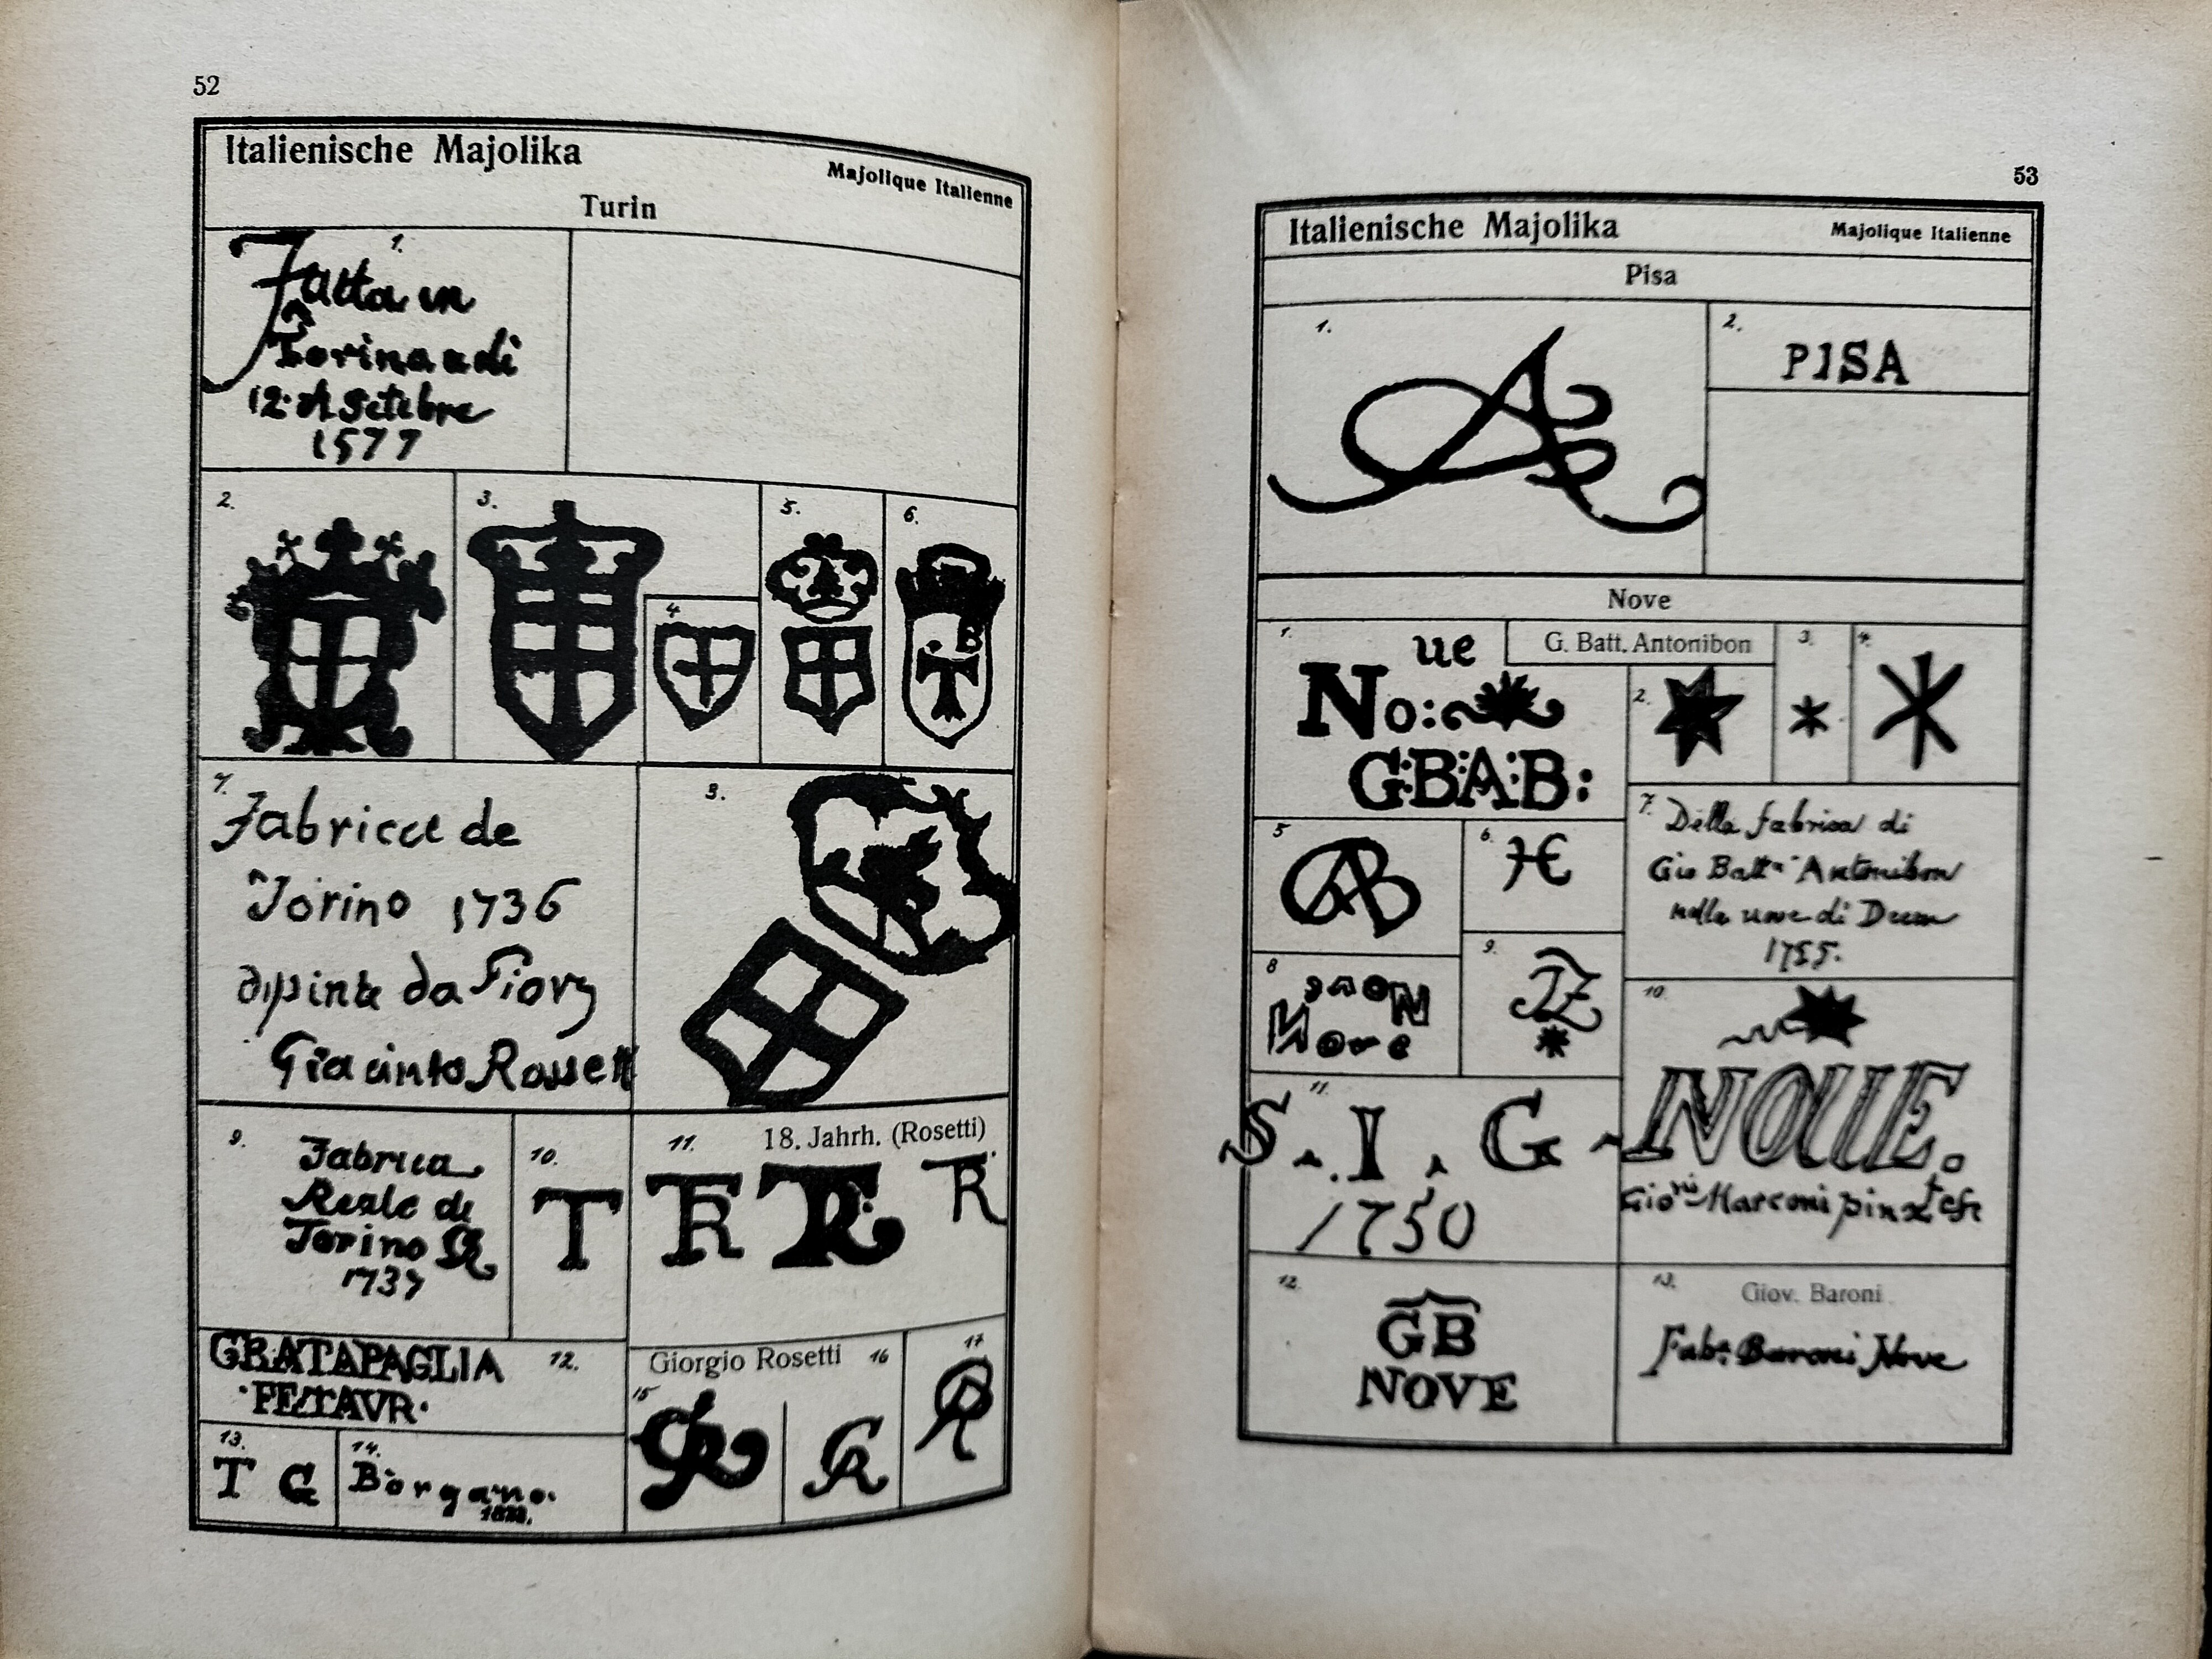 52
Italienische Majolika
Majolique Italienne
Turin
1.
Fatta in
Torino adi
12 d Setebre
1577
2.
3.
4
5.
6.
B
T
7.
Fabrica de
Torino 1736
dipinta da Fiory
Giacinto Rossett
3.
9.
Fabrica
Reale de
Torino GR
1737
10.
T
11.
18. Jahrh. (Rosetti)
TR TR R
GRATAPAGLIA
12.
·FE/TAVR·
13.
T G
14.
Borgano.
Giorgio Rosetti
15
GR
16
GR
17
53
Italienische Majolika
Majolique Italienne
Pisa
1.
2.
PISA
Nove
1.
ue
No:
G:B:A:B:
G. Batt. Antonibon
2.
3.
4.
5
AB
6.
7.
Della fabrica di
Gio Batta Antonibon
nella uove di Decem
1755.
8
Nove
Nove
9.
10.
NOUE.
Gioni Marconi pinxt
11.
S. I. G
1750
12.
GB
NOVE
13.
Giov. Baroni
Faba. Baroni Nove